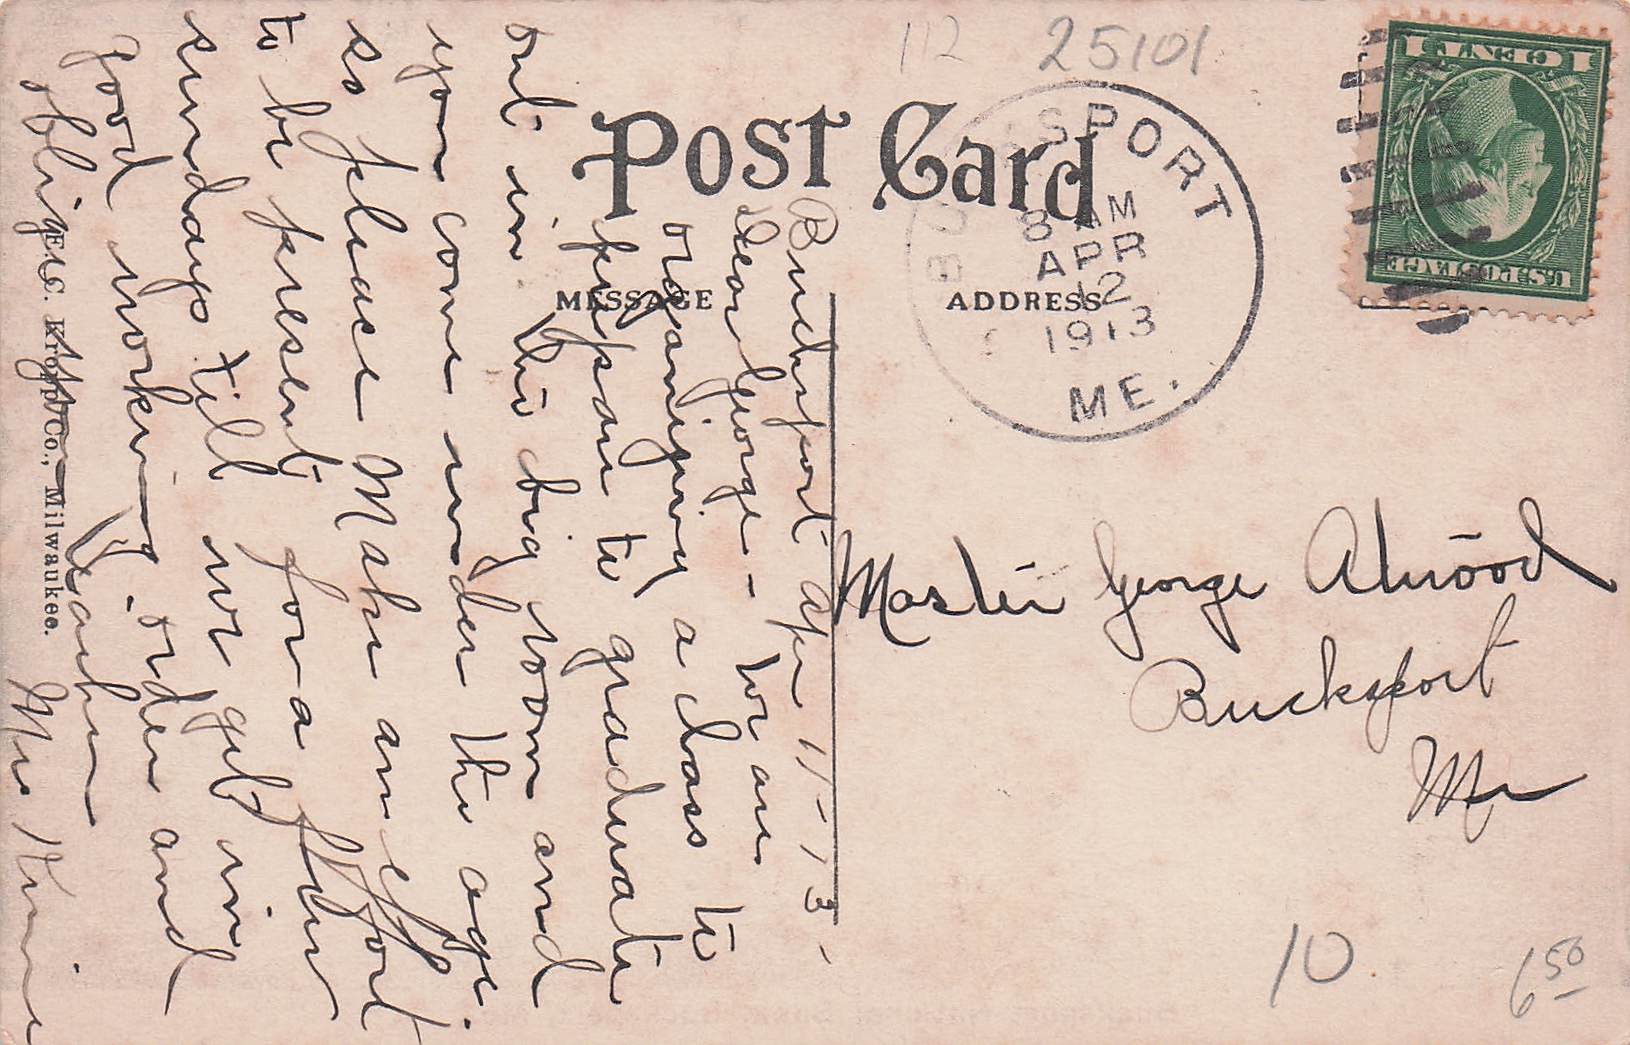 112 25101
Post Card
MESSAGE
ADDRESS
BUCKSPORT
8 AM
APR
12
1913
ME.
1 CENT 1
U.S. POSTAGE
Bucksport Apr 11-13-
Dear George - We are
organizing a class to
prepare to graduate
out in the big room and
you come under the age.
so please make an effort
to be present for a few
sundays till we get in
good working order and
oblige your teacher
Mrs
E. C. Kropp Co., Milwaukee.
Master George Atwood
Bucksport
Me
10
6 50